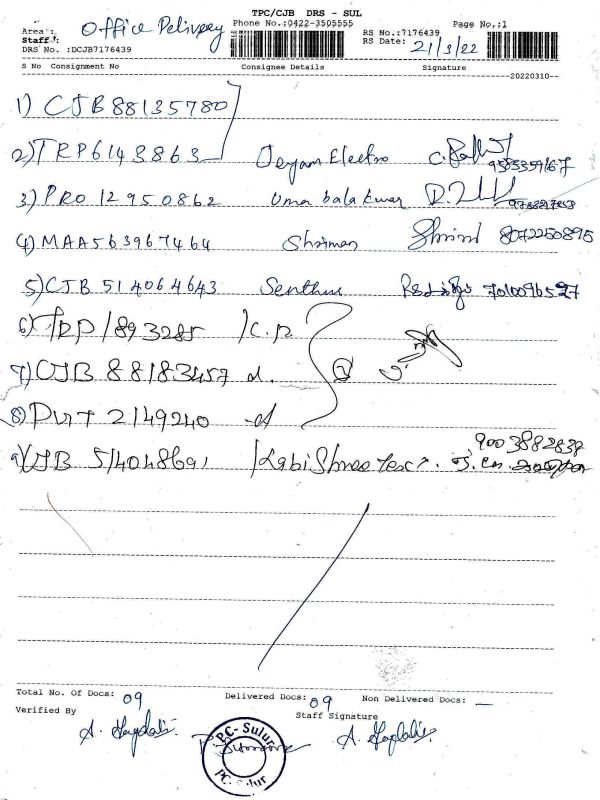 TPC/CJB DRS - SUL
Phone No.:0422-3505555 Page No,;1
Area : Office Delivery
Staff :
RS No.:7176439
DRS No. :DCJB7176439
RS Date: 21/3/22
S No Consignment No Consignee Details Signature
--20220310--
1) CJB 88135780
2) TRP6143863 Jeyam Electro
9585359167
3) PRO 12950862 Uma bala kumar
4) MAA563967464 Shriman 8072250895
5) CJB 514064643 Senthil 7010096527
6) TRP 1893285 / C.P
7) CJB 88183457 d.
8) PUT 2149240 d
9) CJB 514048691 / Kabi Shree Tex
9003882838
Total No. Of Docs: 09 Delivered Docs: 09 Non Delivered Docs: —
Verified By Staff Signature
PC- Sulur
PC- Sulur